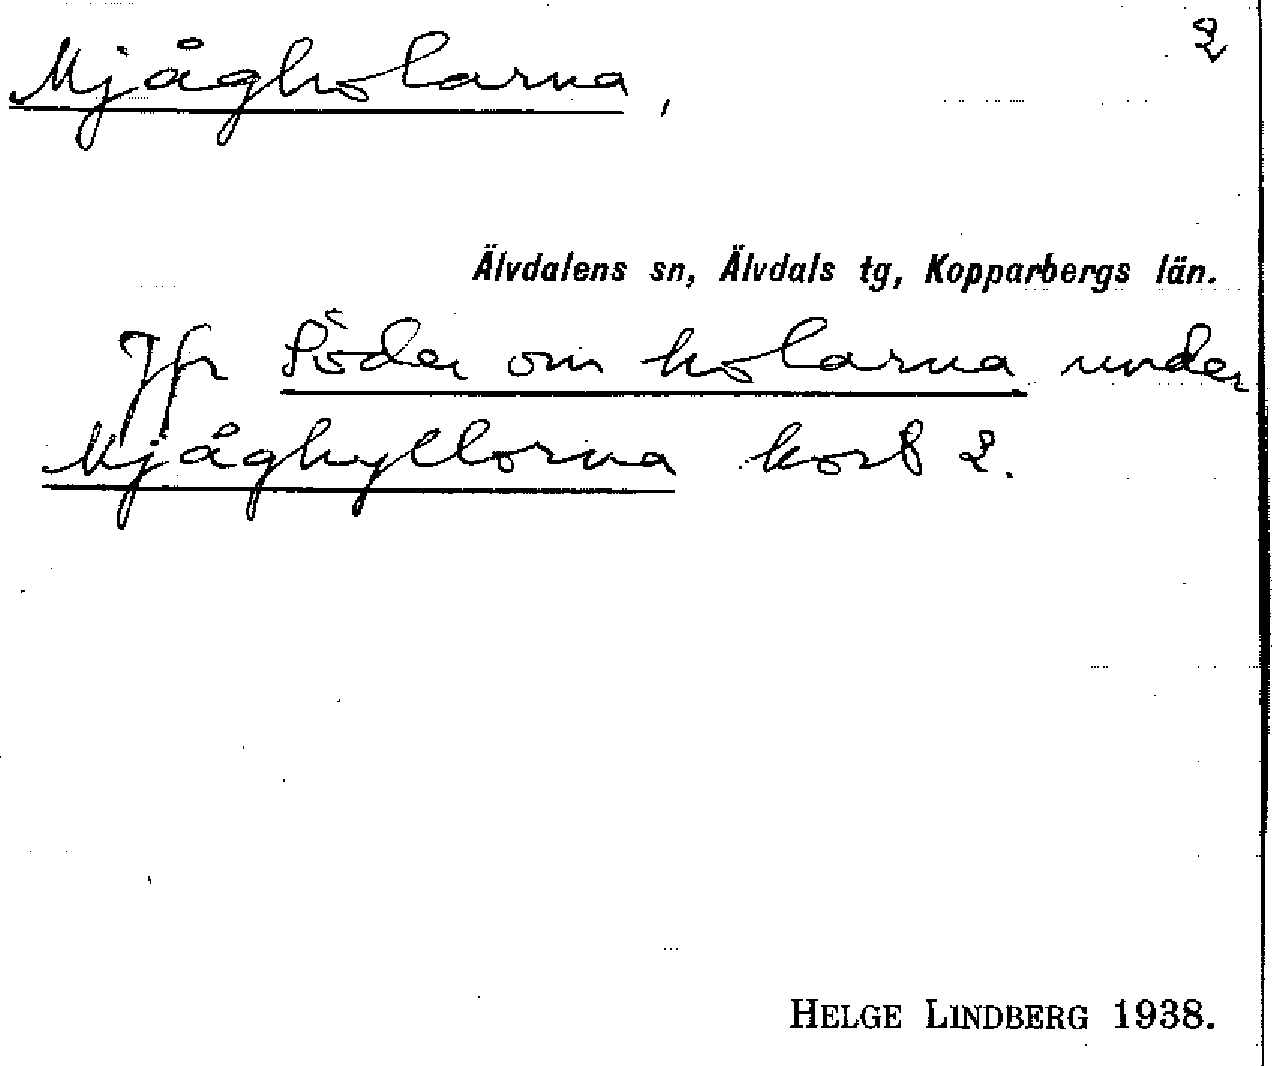 Mjågholarna, 2
Älvdalens sn, Älvdals tg, Kopparbergs län.
Jfr Söder om holarna under
Mjåghyllorna kort 2.
HELGE LINDBERG 1938.